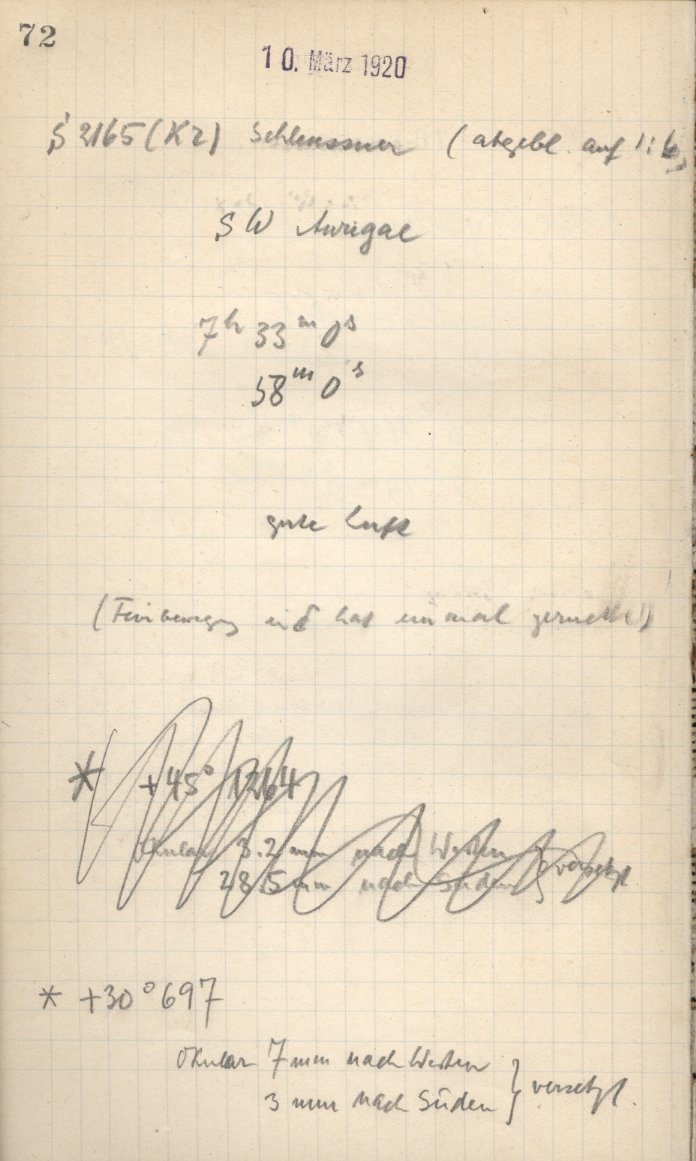 72
10. März 1920
S 2165 (K2) Schleussner (abgebl. auf 1:6)
SW Aurigae
7h 33m 0s
58m 0s
gute Luft
(Feinbewegung in δ hat einmal geruckt!)
* +45° 1264
Okular 3.2 mm nach Westen } versetzt
28.5 mm nach Süden
* +30° 697
Okular 7 mm nach Westen } versetzt.
3 mm nach Süden